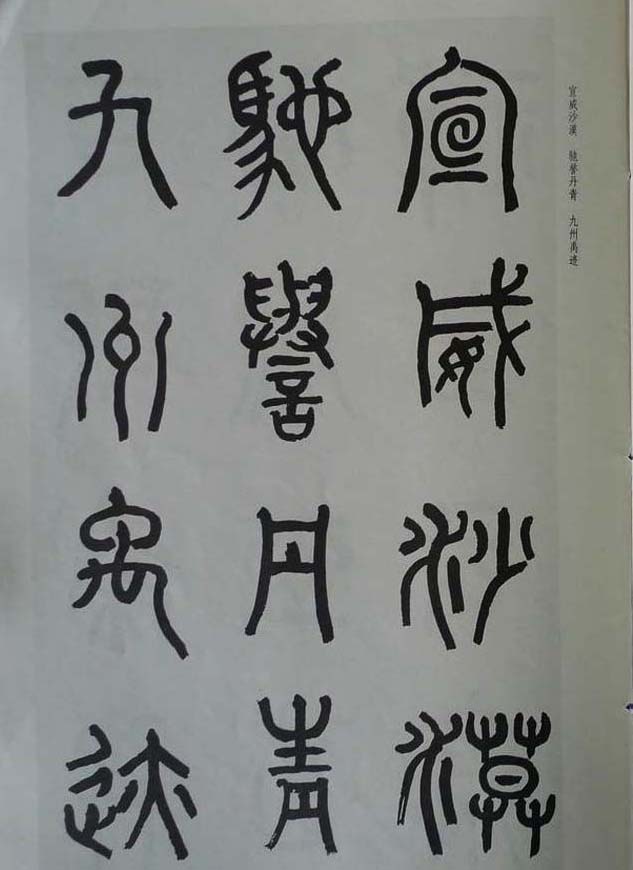 宣威沙漠
馳譽丹青
九州禹迹
宣威沙漠 驰誉丹青 九州禹迹